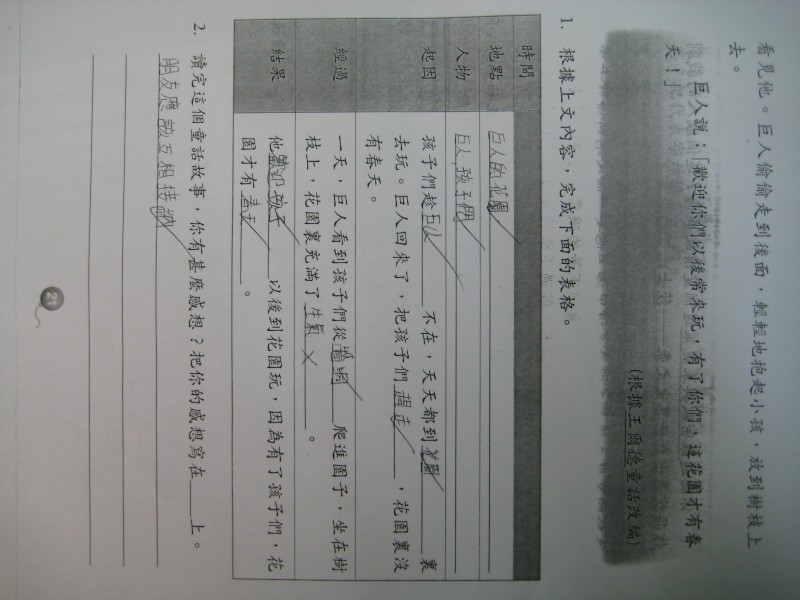 看見他。巨人偷偷走到後面,輕輕地抱起小孩,放到樹枝上
去。
巨人說:「歡迎你們以後常來玩,有了你們,這花園才有春
天!」
(根據王爾德童話改編)
1. 根據上文內容,完成下面的表格。
時間
地點 巨人的花園
人物 巨人,孩子們
起因 孩子們趁巨人不在,天天都到花園裏
去玩。巨人回來了,把孩子們趕走,花園裏沒
有春天。
經過 一天,巨人看到孩子們從牆洞爬進園子,坐在樹
枝上,花園裏充滿了生氣。
結果 他歡迎孩子以後到花園玩,因為有了孩子們,花
園才有春天。
2. 讀完這個童話故事,你有甚麼感想?把你的感想寫在____上。
朋友應該互相
21